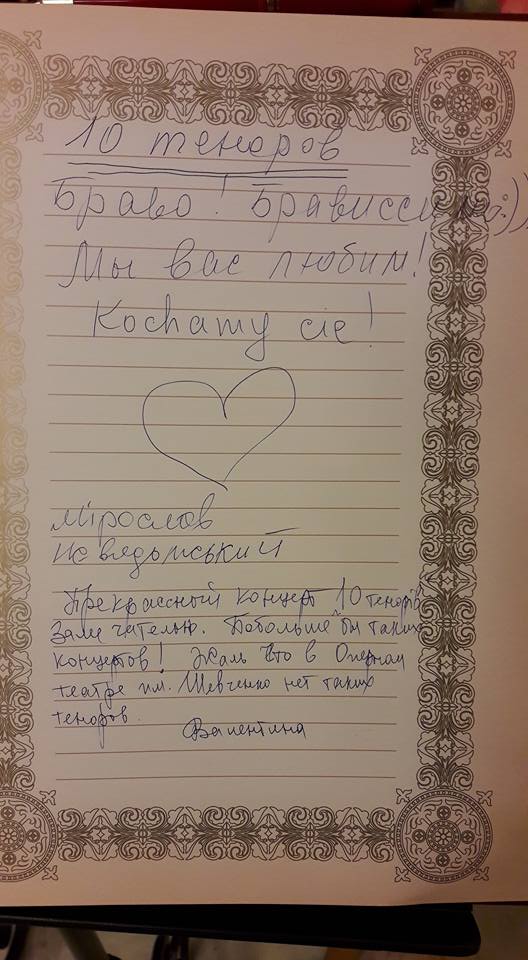 10 теноров
Браво! Брависсимо:))
Мы вас любим!
Kochamy cię!
Мірослов
Невядомський
Прекрассный концерт 10 тенорів
Замечательно. Побольше бы таких
концертов! Жаль что в Оперном
театре им. Шевченко нет таких
теноров.
Валентина